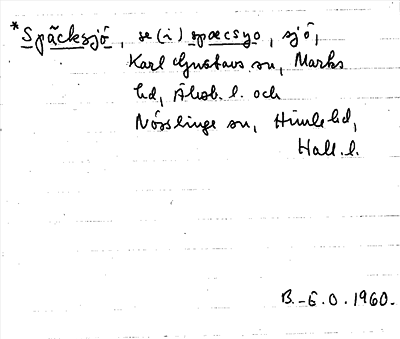 *Späcksjö, se (i) spæcsyo, sjö,
Karl Gustavs sn, Marks
hd, Älvsb. l. och
Nösslinge sn, Himle hd,
Hall. l.
B.-E.O. 1960.